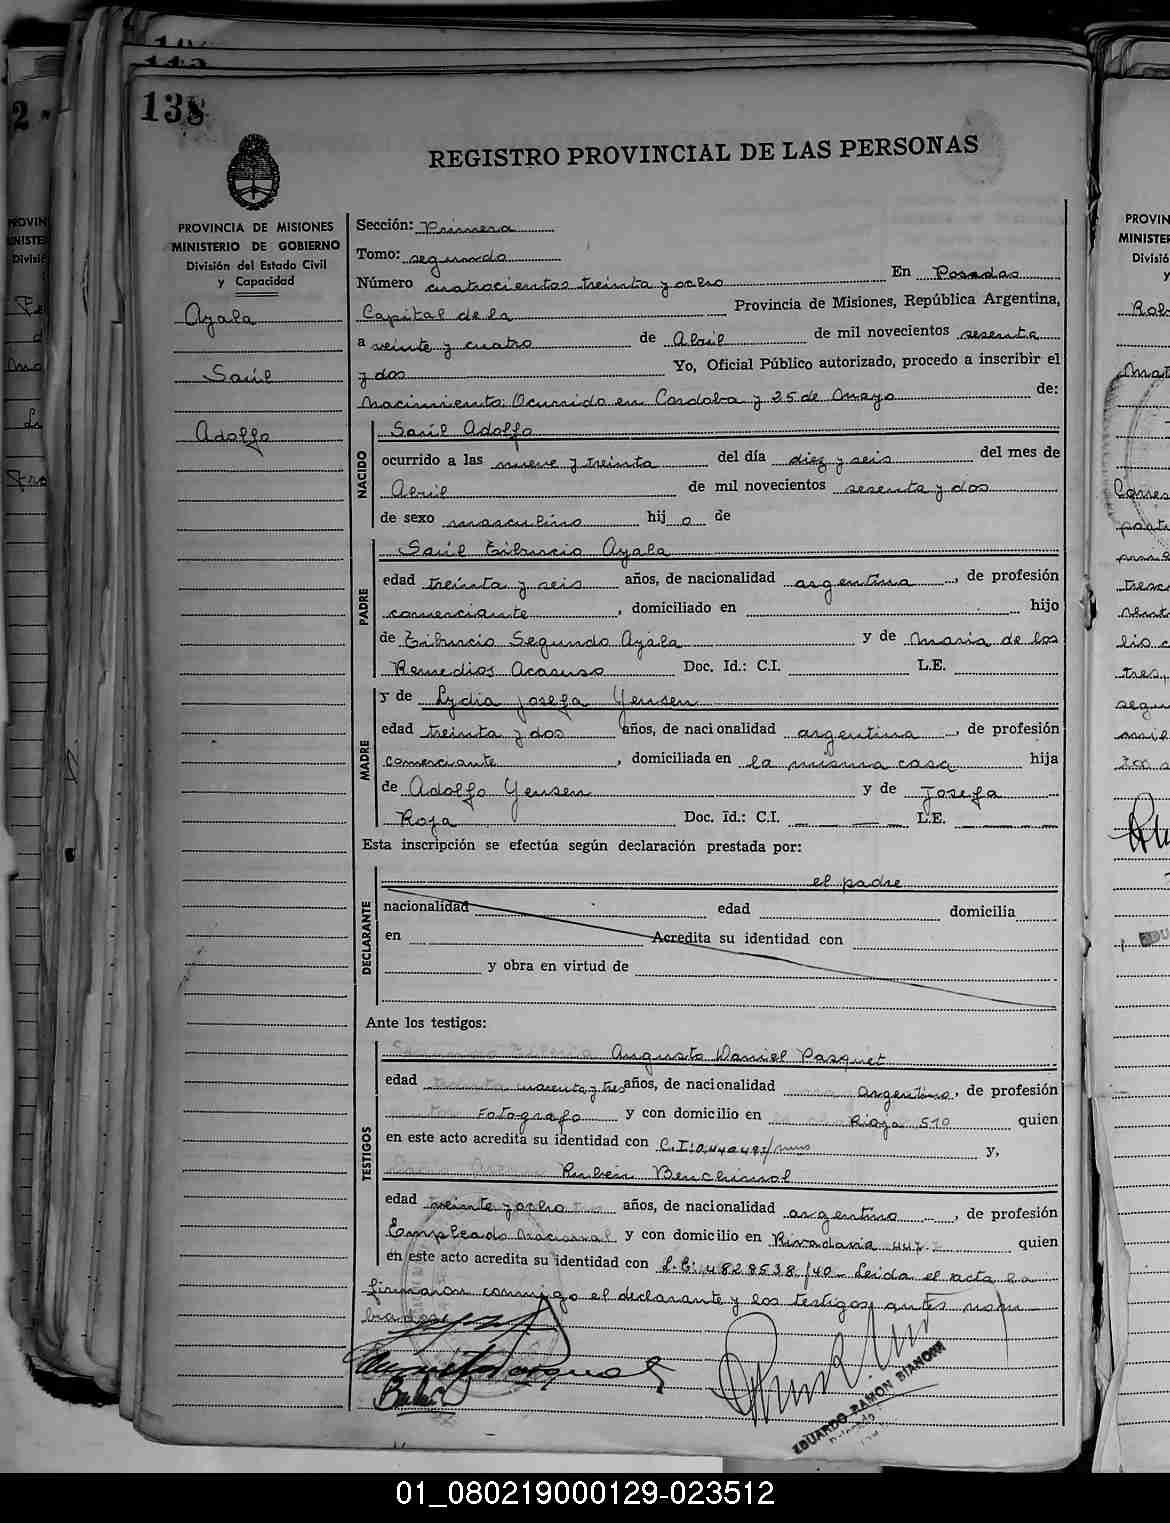 138
REGISTRO PROVINCIAL DE LAS PERSONAS
PROVINCIA DE MISIONES
MINISTERIO DE GOBIERNO
División del Estado Civil
y Capacidad
Ayala
Saúl
Adolfo
Sección: Primera
Tomo: segundo
Número cuatrocientos treinta y ocho En Posadas
Capital de la Provincia de Misiones, República Argentina,
a veinte y cuatro de Abril de mil novecientos sesenta
y dos Yo, Oficial Público autorizado, procedo a inscribir el
Nacimiento Ocurrido en Cordoba y 25 de Mayo de:
NACIDO
Saúl Adolfo
ocurrido a las nueve y treinta del día diez y seis del mes de
Abril de mil novecientos sesenta y dos
de sexo masculino hijo de
PADRE
Saúl Tiburcio Ayala
edad treinta y seis años, de nacionalidad argentina, de profesión
comerciante, domiciliado en hijo
de Tiburcio Segundo Ayala y de Maria de los
Remedios Acasuso Doc. Id.: C.I. L.E.
MADRE
y de Lydia Josefa Yensen
edad treinta y dos años, de nacionalidad argentina, de profesión
comerciante, domiciliada en la misma casa hija
de Adolfo Yensen y de Josefa
Roja Doc. Id.: C.I. L.E.
Esta inscripción se efectúa según declaración prestada por:
DECLARANTE
el padre
nacionalidad edad domicilia
en Acredita su identidad con
y obra en virtud de
Ante los testigos:
TESTIGOS
Augusto Daniel Pasquet
edad cuarenta y tres años, de nacionalidad Argentino, de profesión
Fotografo y con domicilio en Rioja 510 quien
en este acto acredita su identidad con C.I: y,
Rubein Benchimol
edad treinta y ocho años, de nacionalidad argentino, de profesión
Empleado Nacional y con domicilio en Rivadavia quien
en este acto acredita su identidad con L.E: 4828538/40 - Leida el acta la
firmaron conmigo el declarante y los testigos antes nom
brados
EDUARDO RAMON BIANCHI
Delegado
01_080219000129-023512